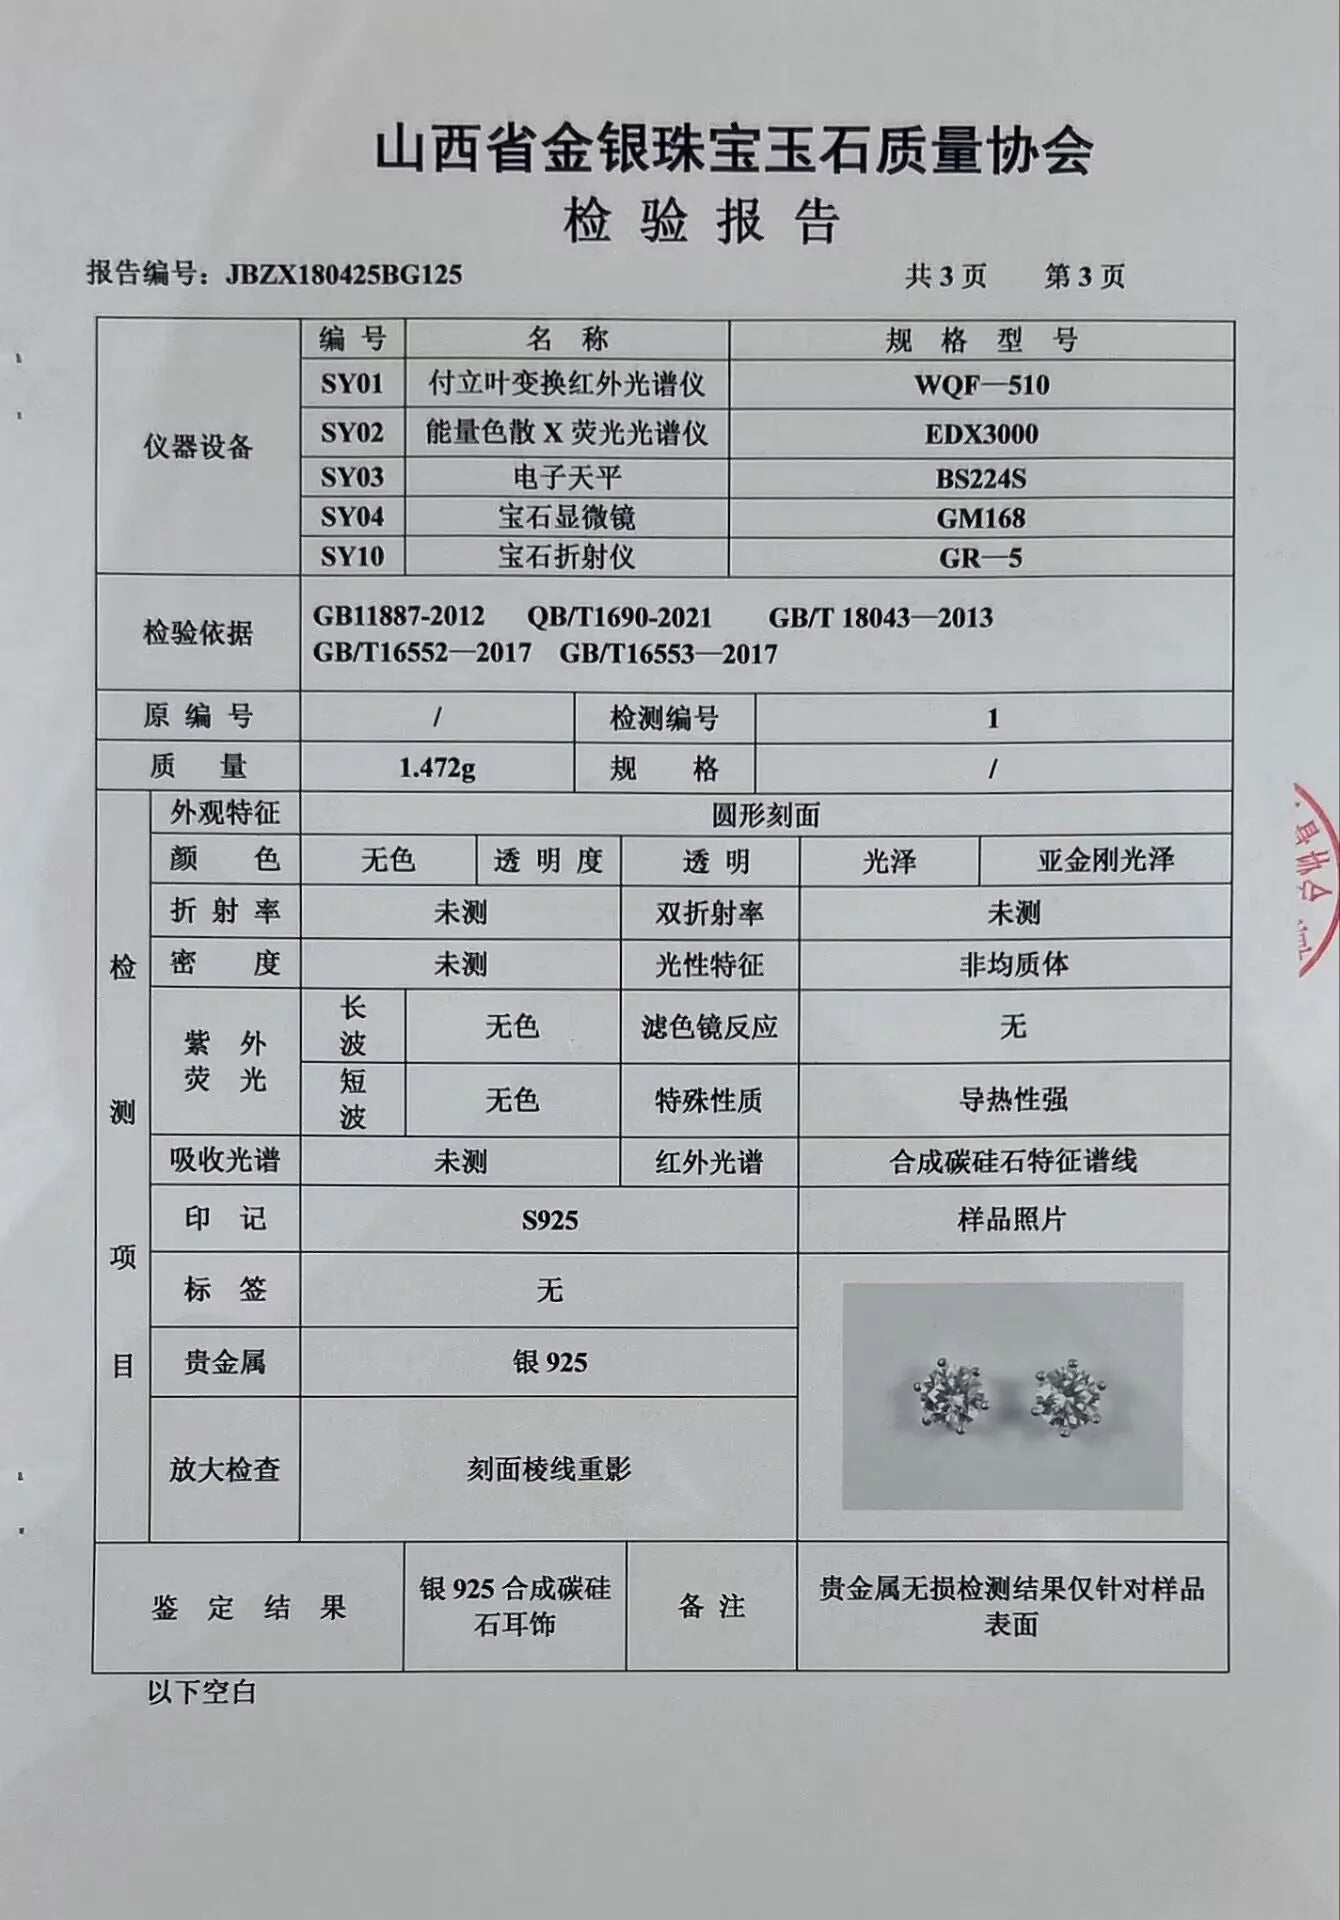 山西省金银珠宝玉石质量协会
检验报告
报告编号：JBZX180425BG125 共3页 第3页
仪器设备
编号 名称 规格型号
SY01 付立叶变换红外光谱仪 WQF—510
SY02 能量色散X荧光光谱仪 EDX3000
SY03 电子天平 BS224S
SY04 宝石显微镜 GM168
SY10 宝石折射仪 GR—5
检验依据
GB11887-2012 QB/T1690-2021 GB/T 18043—2013
GB/T16552—2017 GB/T16553—2017
原编号 / 检测编号 1
质量 1.472g 规格 /
检测项目
外观特征 圆形刻面
颜色 无色 透明度 透明 光泽 亚金刚光泽
折射率 未测 双折射率 未测
密度 未测 光性特征 非均质体
紫外荧光
长波 无色 滤色镜反应 无
短波 无色 特殊性质 导热性强
吸收光谱 未测 红外光谱 合成碳硅石特征谱线
印记 S925 样品照片
标签 无
贵金属 银925
放大检查 刻面棱线重影
鉴定结果
银925合成碳硅
石耳饰
备注
贵金属无损检测结果仅针对样品
表面
以下空白
协会